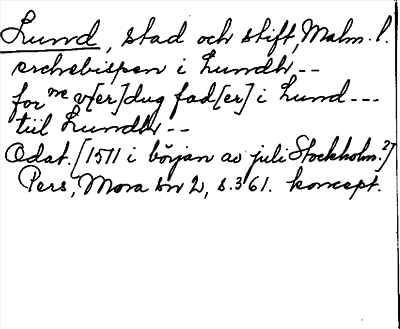 Lund, stad och stift, Malm. l.
erchebispen i Lundh --
for me v[er]dug fad[er] i Lund ---
tiil Lundh --
Odat. [1511 i början av juli Stockholm.?]
Pers, Mora sn 2, s. 361. koncept.